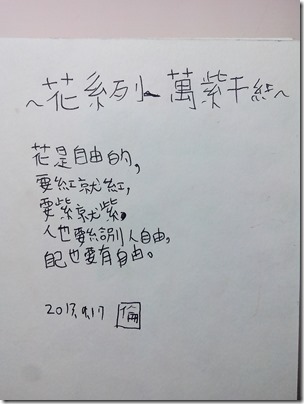 ~花系列 萬紫千紅~
花是自由的,
要紅就紅,
要紫就紫,
人也要給別人自由,
自己也要有自由。
2017.9.17 倫